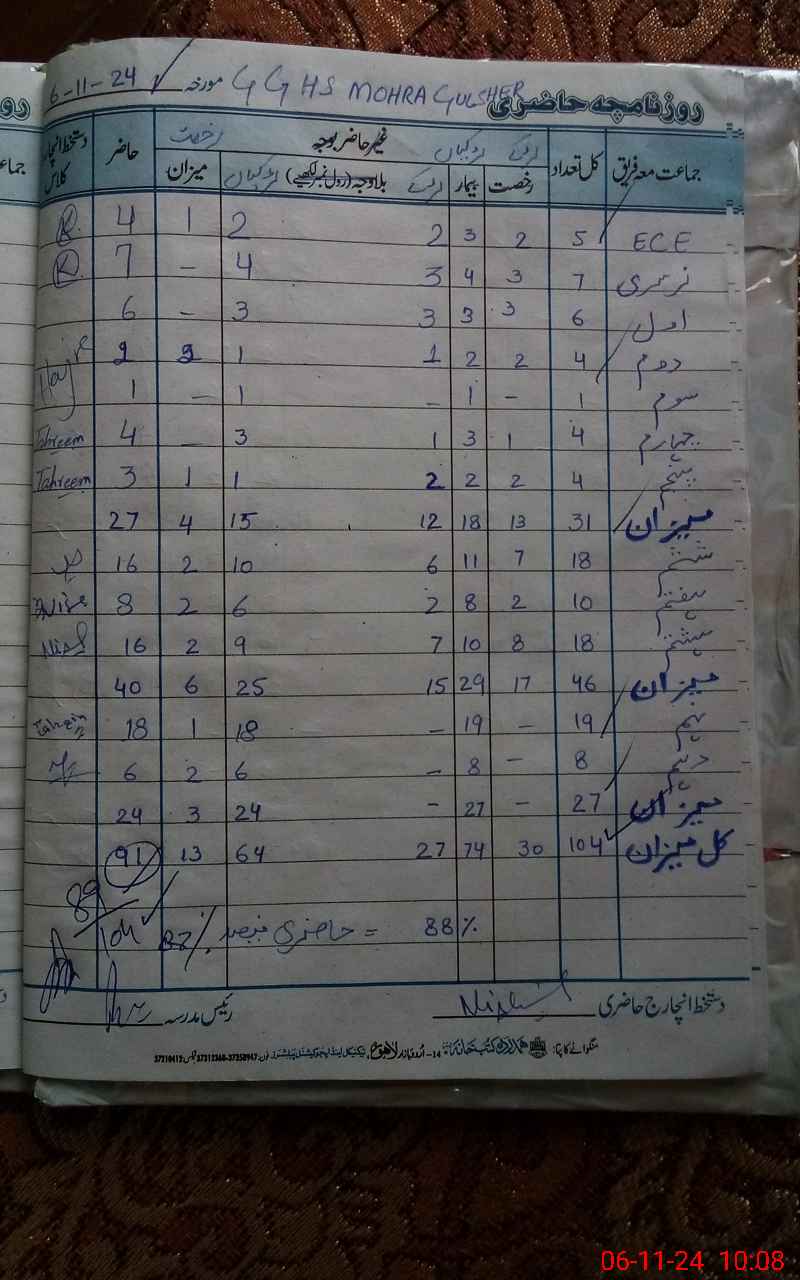 6-11-24 مورخہ G G HS MOHRA GULSHER روزنامچہ حاضری
جماعت معہ فریق کل تعداد لڑکے لڑکیاں غیر حاضر بوجہ رخصت حاضر دستخط انچارج کلاس
رخصت بیمار لڑکے بلاوجہ (رول نمبر لکھیے) لڑکیاں میزان
ECE 5 2 3 2 2 1 4
نرسری 7 3 4 3 4 - 7
اول 6 3 3 3 3 - 6
دوم 4 2 2 1 1 2 2
سوم 1 - 1 - 1 - 1
چہارم 4 1 3 1 3 - 4 Tahreem
پنجم 4 2 2 2 1 1 3 Tahreem
میزان 31 13 18 12 15 4 27
ششم 18 7 11 6 10 2 16
ہفتم 10 2 8 2 6 2 8
ہشتم 18 8 10 7 9 2 16
میزان 46 17 29 15 25 6 40
نہم 19 - 19 - 18 1 18
دہم 8 - 8 - 6 2 6
میزان 27 - 27 - 24 3 24
کل میزان 104 30 74 27 64 13 91
89
104
حاضری فیصد = 88 %
دستخط انچارج حاضری رئیس مدرسہ
منگوانے کا پتہ: ہمدرد کتب خانہ 14 - اُردو بازار لاہور
06-11-24 10:08